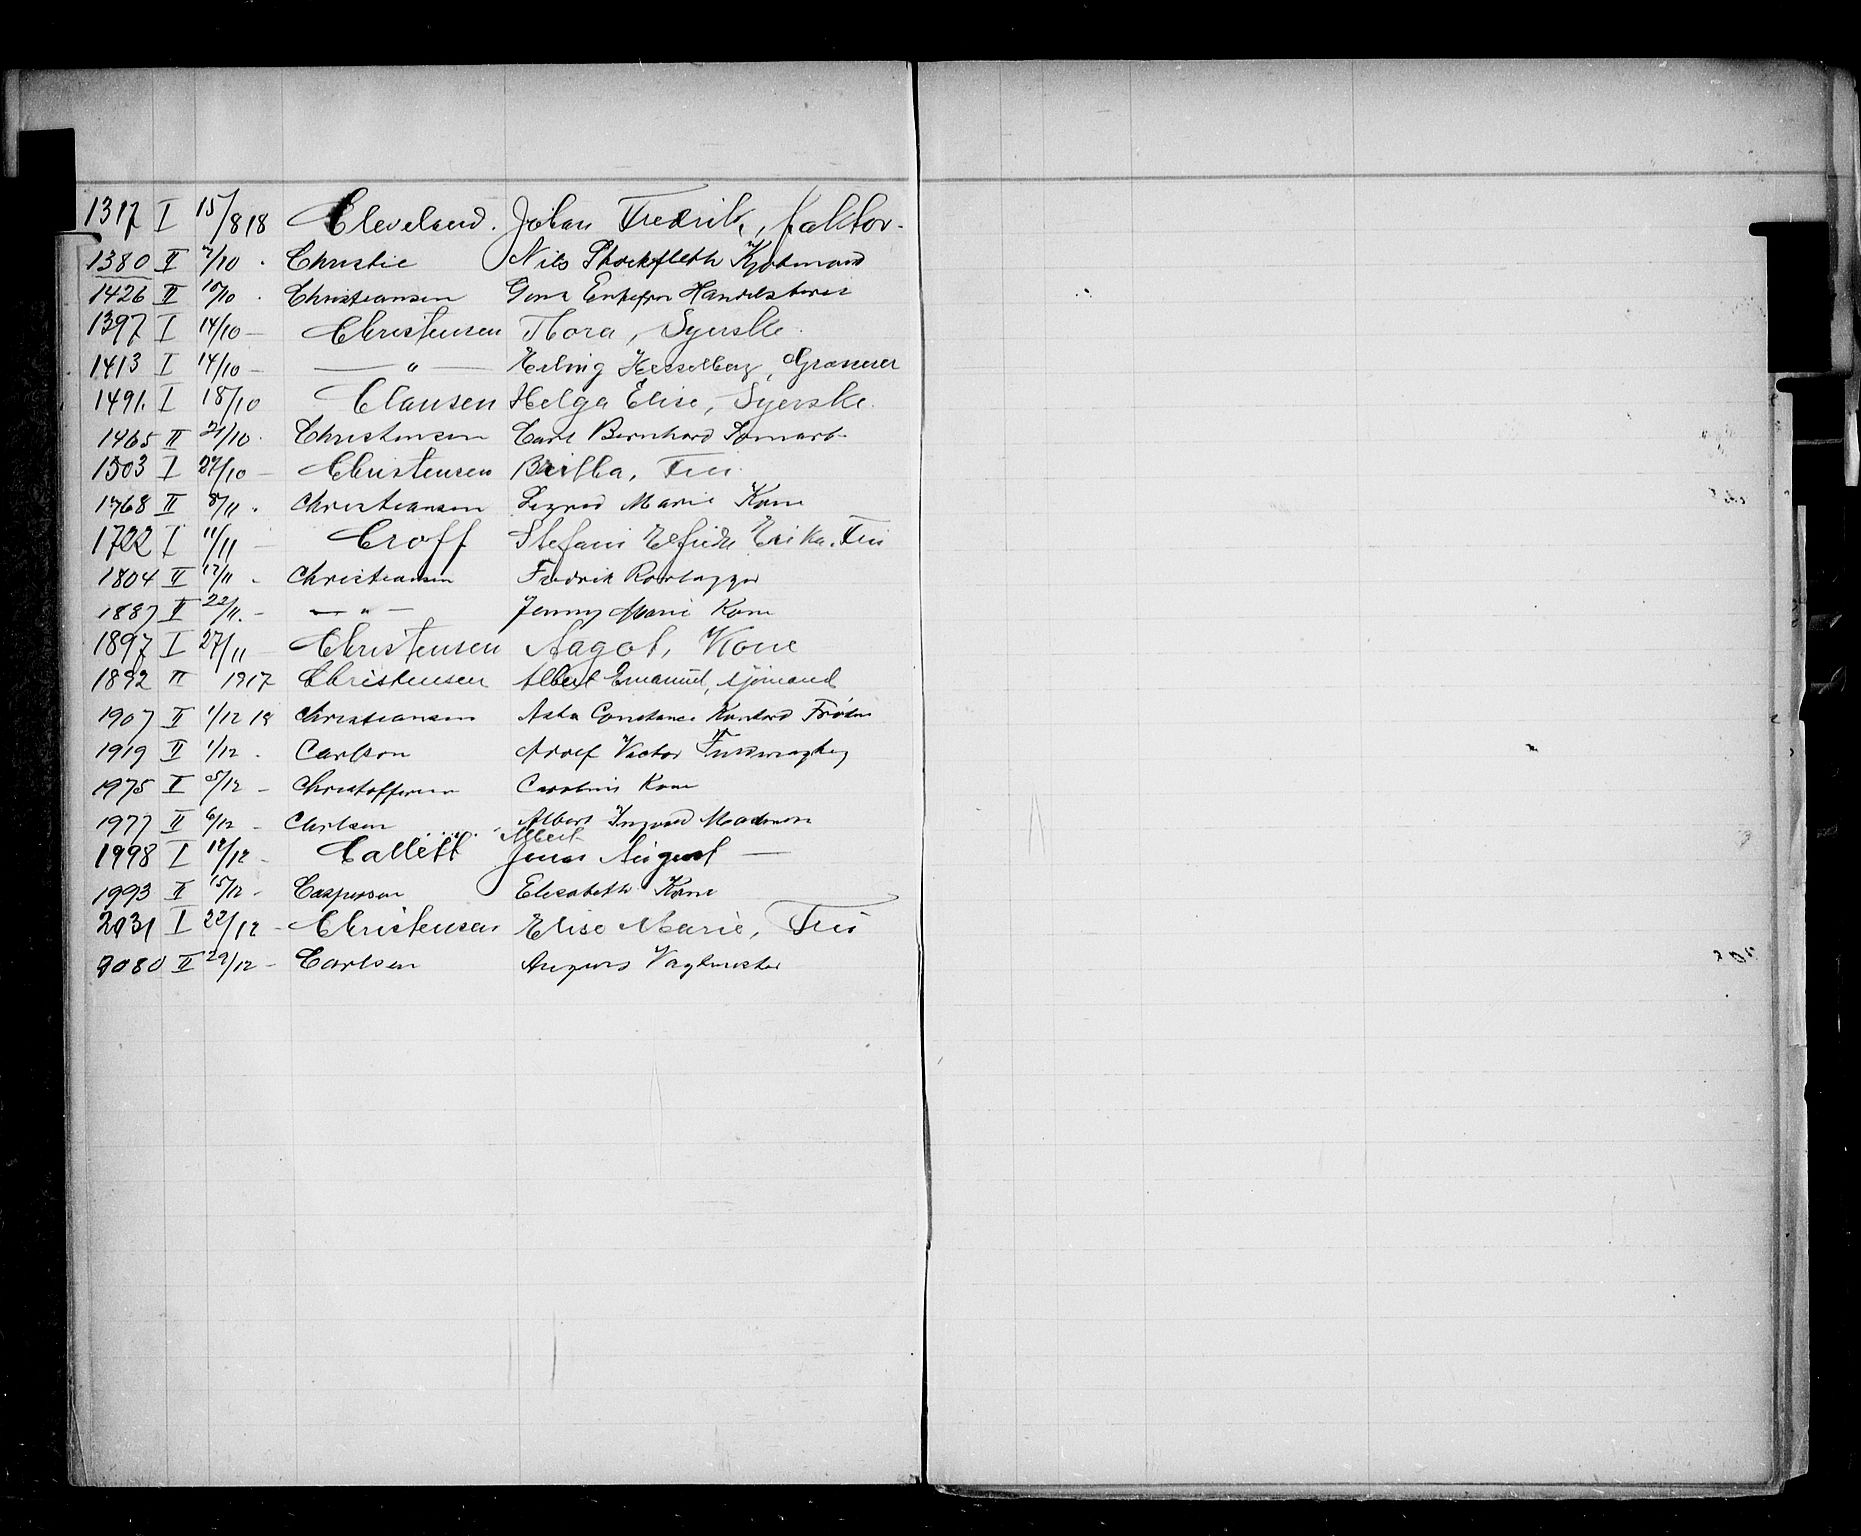 1317 I 15/8 18 Cleveland. Johan Fredrik, faktor.
1380 II 7/10 . Christie Nils Stockfleth Kjøbmand
1426 II 10/10 . Christiansen Enkefru
1397 I 14/10 – Christensen Thora, Syerske.
1413 I 14/10 – — " — Erling Hesselberg, Grosserer
1491. I 18/10 Clausen Helga Elise, Syerske.
1465 II 21/10 . Christensen Carl Bernhard
1503 I 27/10 – Christensen Fru
1768 II 8/11 . Christiansen Marie Kone
1722 I 11/11 – Croff Stefani Elfride Erika. Fru
1804 II 12/11 – Christiansen Fredrik Rørlægger
1887 II 22/11. – — " — Jenny Marie Kone
1897 I 27/11 Christensen Aagot, Kone
1892 II 1917 Christensen Albert Emanuel, sjømand
1907 II 1/12 18 Christiansen Constance Kontord
1919 II 1/12 . Carlson Adolf Victor
1975 II 5/12 – Christoffersen Kone
1977 II 6/12 – Carlsen Albert
Albert
1998 I 12/12 – Callett Jonas August —
1993 II 15/12 – Caspersen Elisabeth Kone
2031 I 22/12 – Christensen Elise Marie, Fru
2080 II 29/12 – Carlsen Vagtmester